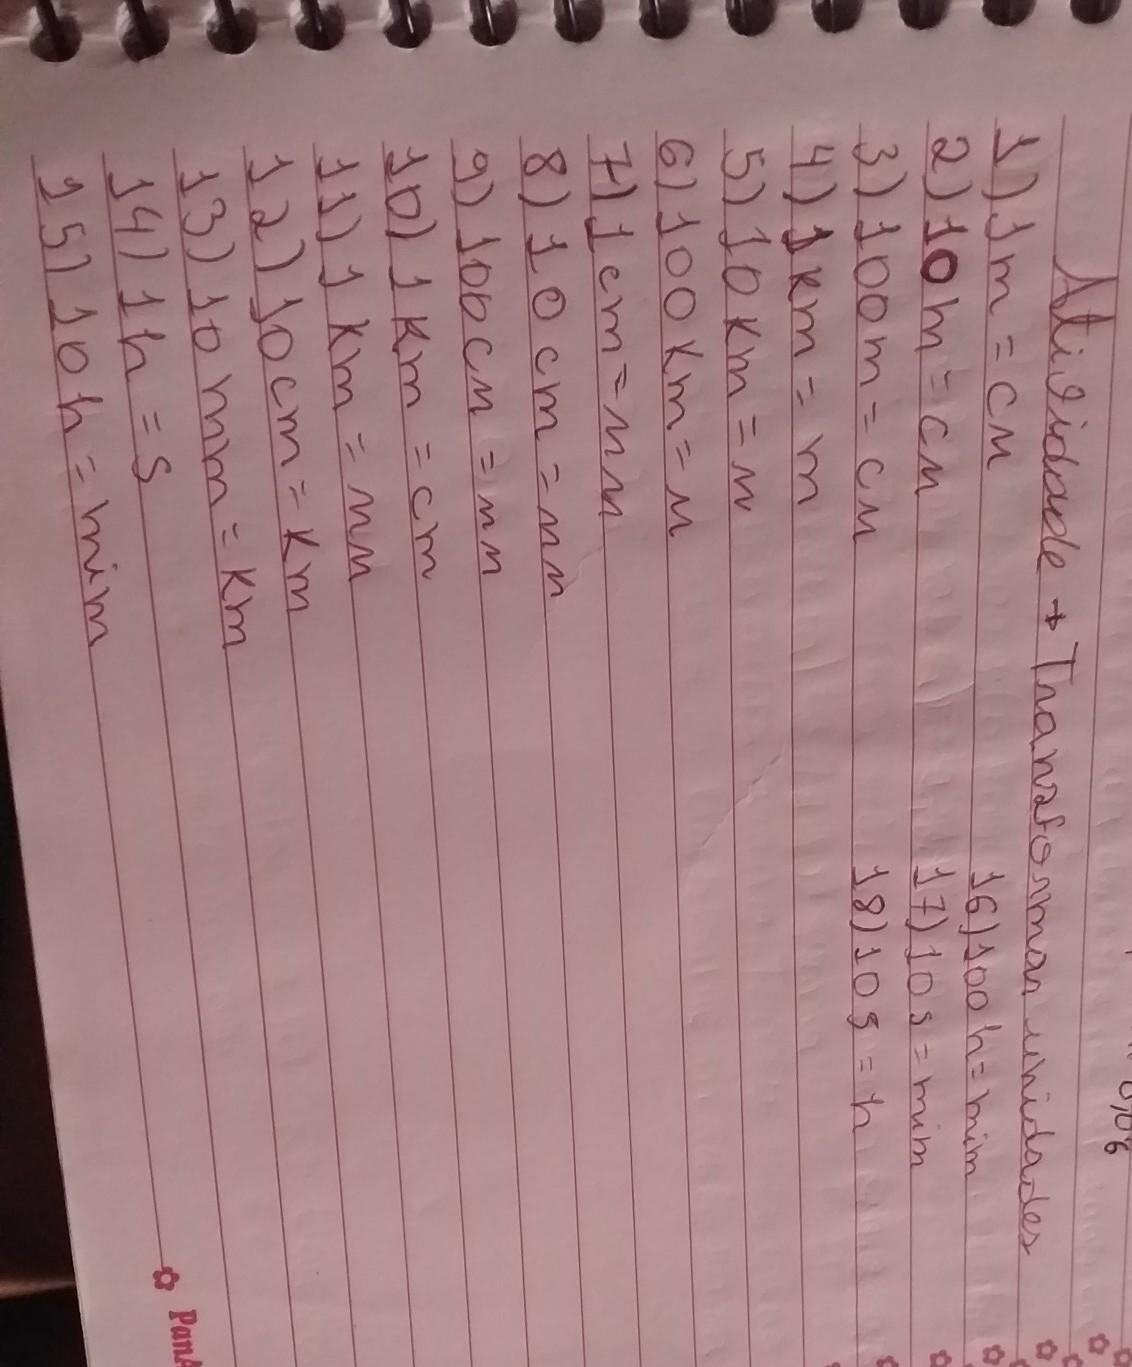 Atividade + Transformar unidades
1) 1m = cm
2) 10m = cm
3) 100m = cm
4) 1km = m
5) 10km = m
6) 100km = m
7) 1cm = mm
8) 10cm = mm
9) 100cm = mm
10) 1km = cm
11) 1km = mm
12) 10cm = km
13) 10mm = km
14) 1h = s
15) 10h = mim
16) 100h = mim
17) 10s = mim
18) 10s = h